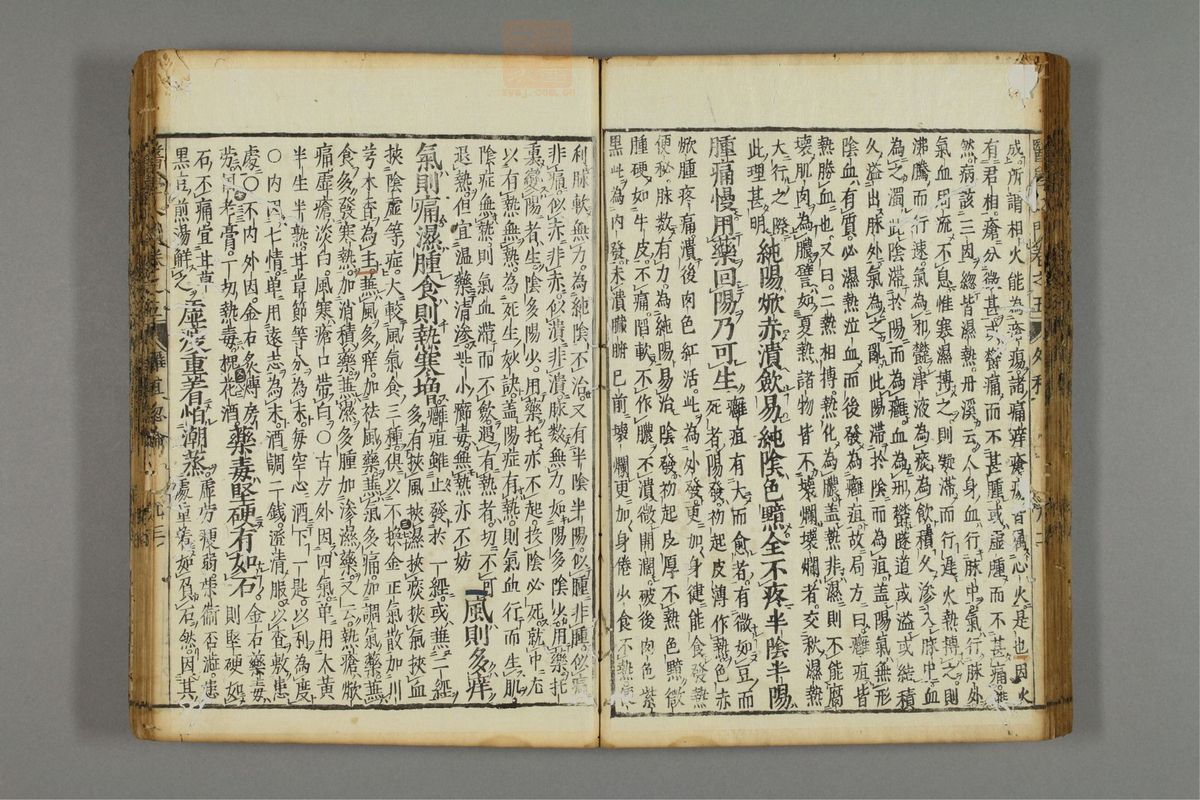 成所謂相火能為瘡瘍諸痛痒瘡瘍皆屬心火是也因火
有君相瘡分微甚或痒痛而不甚腫或虛腫而不甚痛
然病該三因總皆濕熱丹溪云人身血行脉中氣行脉外
氣血周流不息惟寒濕搏之則凝滯而行遲火熱搏之則
沸騰而行速氣為邪鬱津液為痰為飲積久滲入脉中血
為之濁此陰滯於陽而為癰血為邪鬱隧道或溢或結積
久溢出脉外氣為之亂此陽滯於陰而為疽盖陽氣無形
陰血有質必濕熱泣血而後發為癰疽故局方曰癰疽皆
熱勝血也又曰二熱相搏熱化為膿盖熱非濕則不能腐
壞肌肉為膿譬如夏熱諸物皆不壞爛壞爛者交秋濕熱
大行之際
此理甚明純陽焮赤潰斂易純陰色黯全不疼半陰半陽
腫痛慢用藥回陽乃可生癰疽有大而愈者有微如豆而
死者陽發初起皮薄作熱色赤
焮腫疼痛潰後肉色紅活此為外發更加身健能食發熱
便秘脉數有力為純陽易治陰發初起皮厚不熱色黯微
腫硬如牛皮不痛蹈軟不作膿不潰微開濶破後肉色紫
黑此為内發未潰臟腑已前壞爛更加身倦少食不熱便
利脉軟無力為純陰不治又有半陰半陽似腫非腫似痛
非痛似赤非赤似潰非潰脉數無力如陽多陰少用藥托
裏變陽者生陰多陽少用藥托亦不起投陰必死就中尤
以有熱無熱為死生妙訣盖陽症有熱則氣血行而生肌
陰症無熱則氣血滯而不斂過有熱者切不可
退熱但宜温藥清滲些小癤毒無熱亦不妨風則多痒
氣則痛濕腫食則熱寒增癰疽雖止發於一經或無二經
多有挾風挾濕挾痰挾氣挾血
挾陰虛等症大較風氣食三種俱以不換金正氣散加川
芎木香為主無風多痒加祛風藥無氣多痛加調氣藥無
食多發寒熱加消積藥無濕多腫加滲濕藥又云熱瘡焮
痛虛瘡淡白風寒瘡口帶白〇古方外因四氣單用大黃
半生半熟甘草節等分為末每空心酒下一匙以利為度
〇内因七情單用遠志為末酒調二錢澄清服以查敷患
處〇不内外因金石炙煿房
勞
老膏丁切熱毒槐花酒藥毒堅硬有如石金石藥毒
則堅硬如
石不痛宜甘草
黑豆煎湯解之虛沒重着怕潮蒸